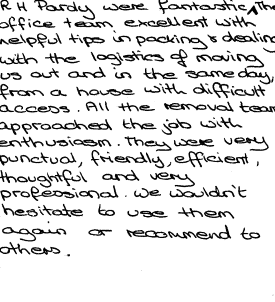 R H Pardy were fantastic, The
office team excellent with
helpful tips in packing & dealing
with the logistics of moving
us out and in the same day,
from a house with difficult
access. All the removal team
approached the job with
enthusiasm. They were very
punctual, friendly, efficient,
thoughtful and very
professional. We wouldn't
hesitate to use them
again or recommend to
others.